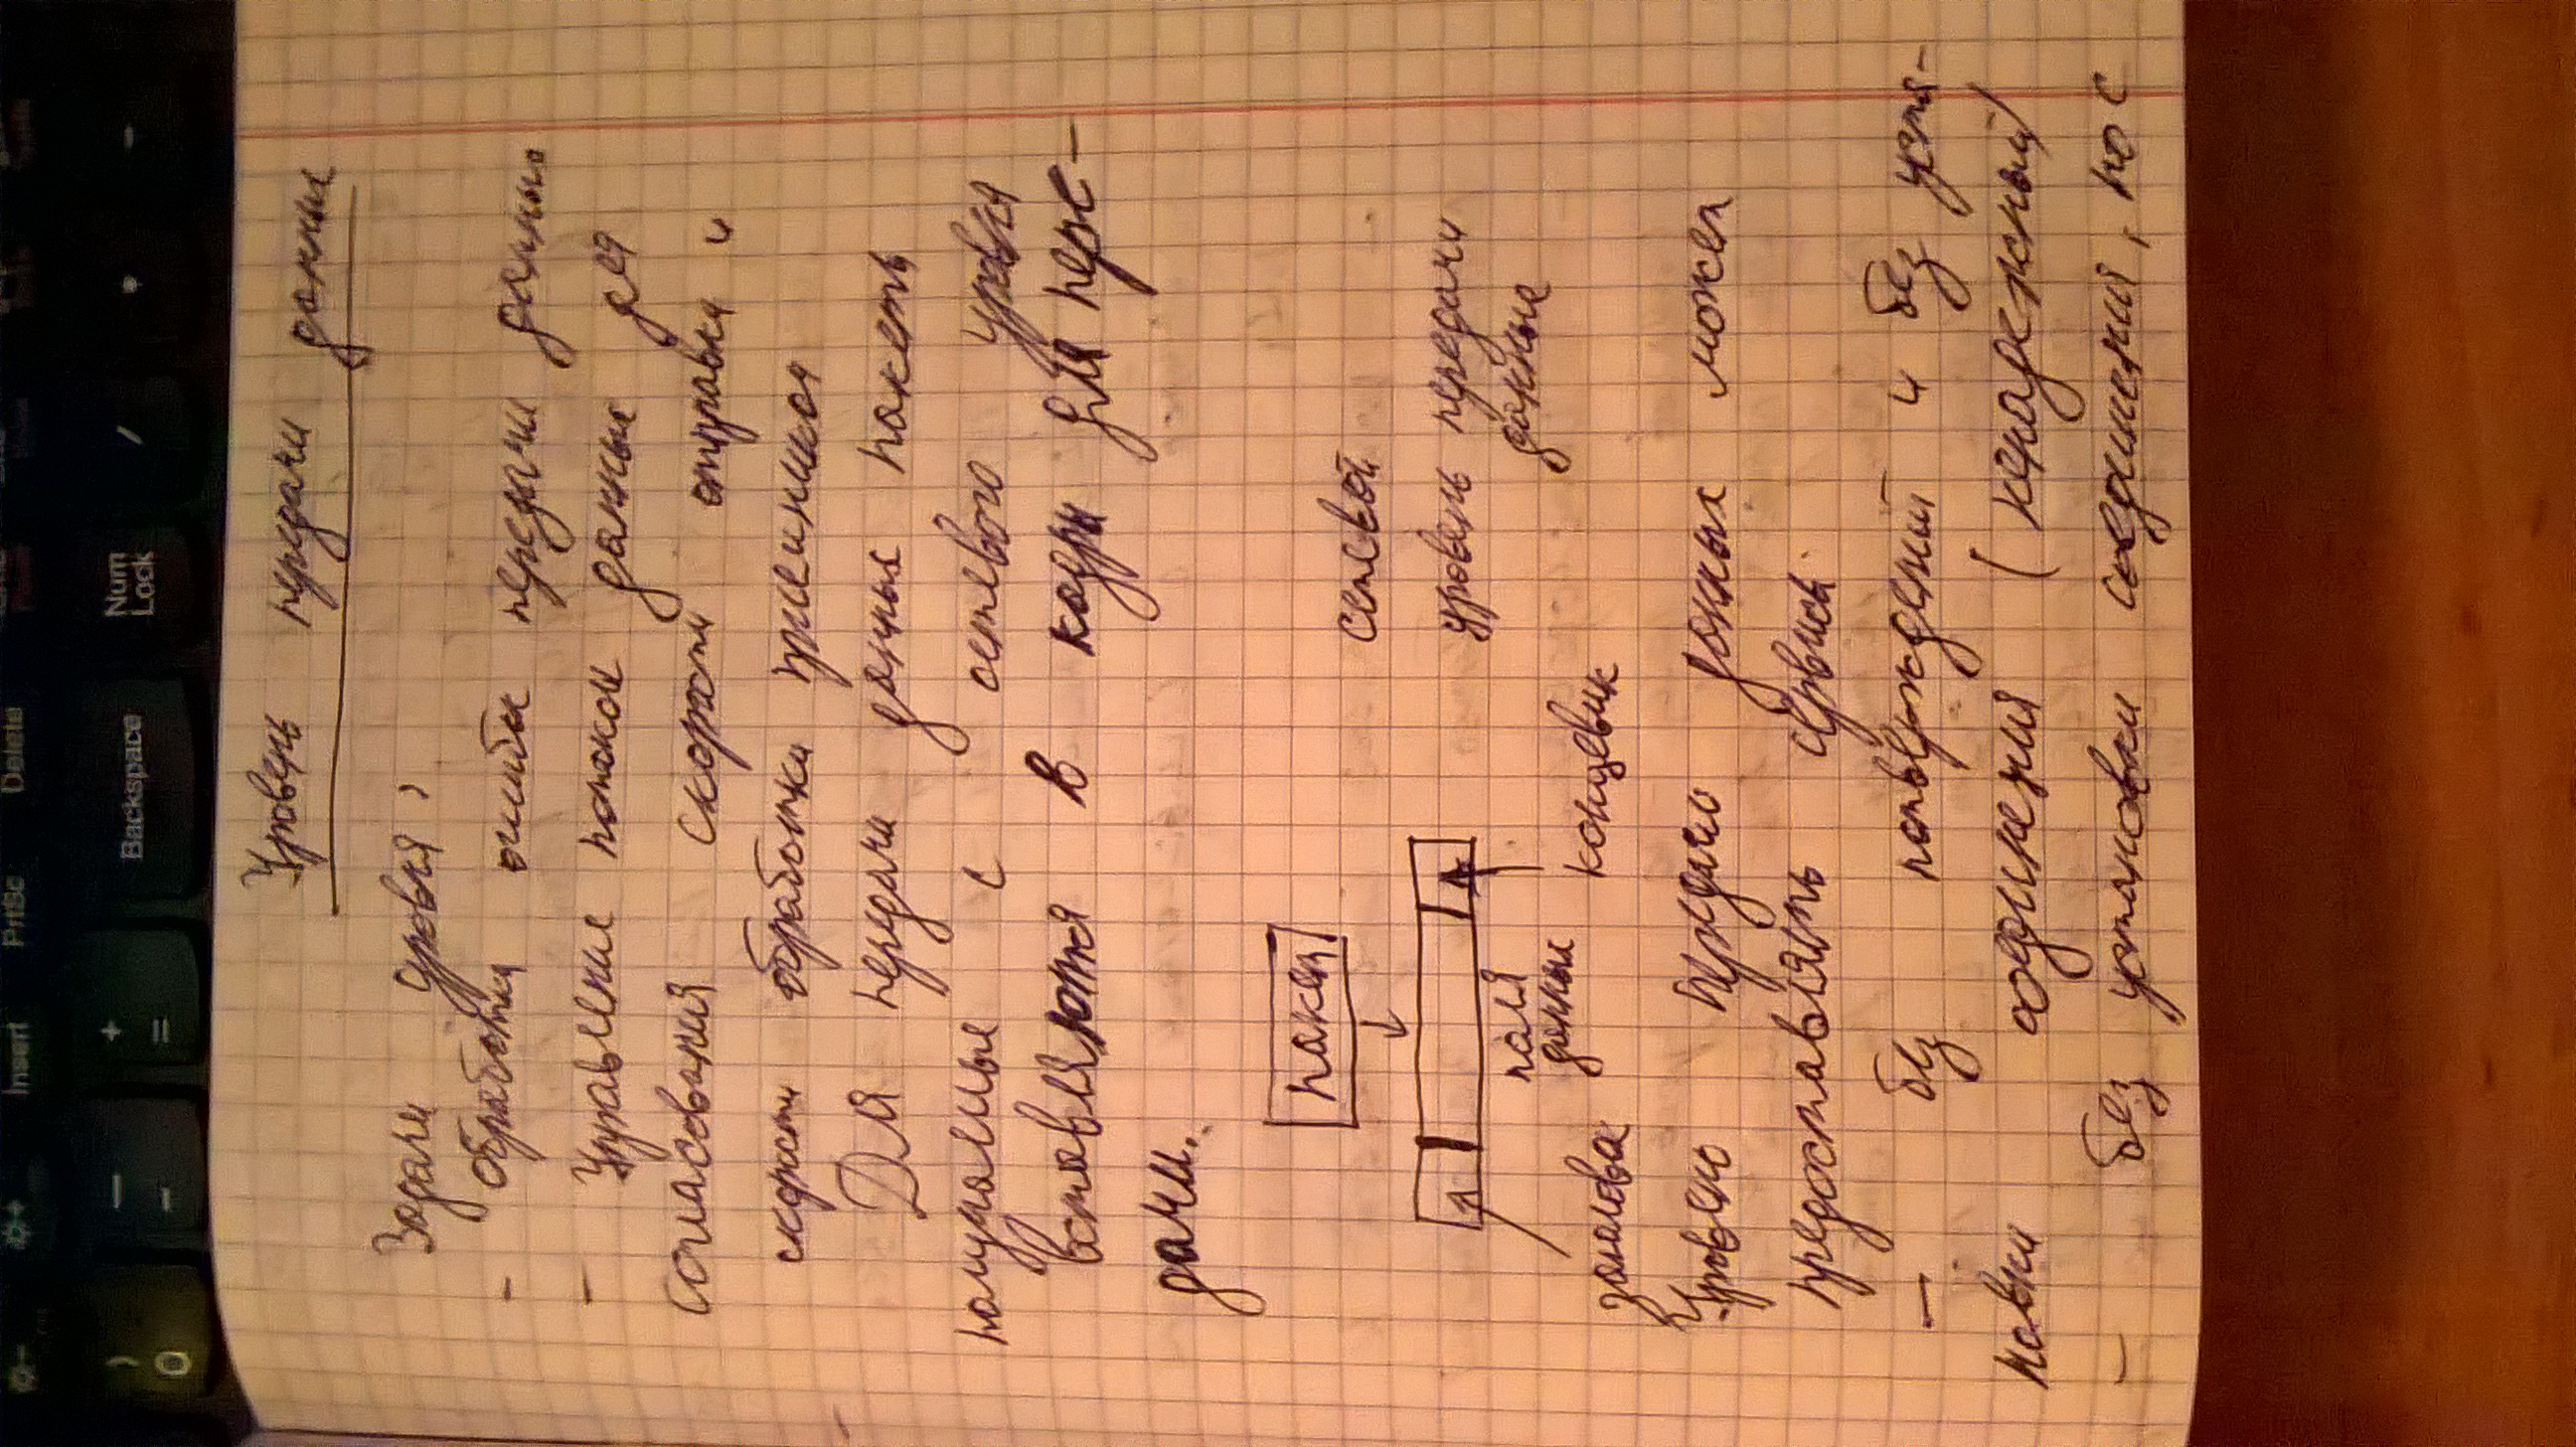 Insert PrtSc Delete
) 0 — - + = Backspace Num Lock / * -
Уровень передачи данных
Задачи уровня:
- обработка ошибок передачи данных
- Управление потоком данных для
согласования скорости отправки и
скорости обработки приемником
Для передачи данных пакеты
получаемые с сетевого уровня
вставляются в кадры для пере-
дачи.
пакет
сетевой
уровень передачи
данных
поля
данных
заголовок
концевик
Уровень передачи данных может
предоставлять сервисы
- без потверждений и без уста-
новки соединения (ненадежный)
- без установки соединения, но с